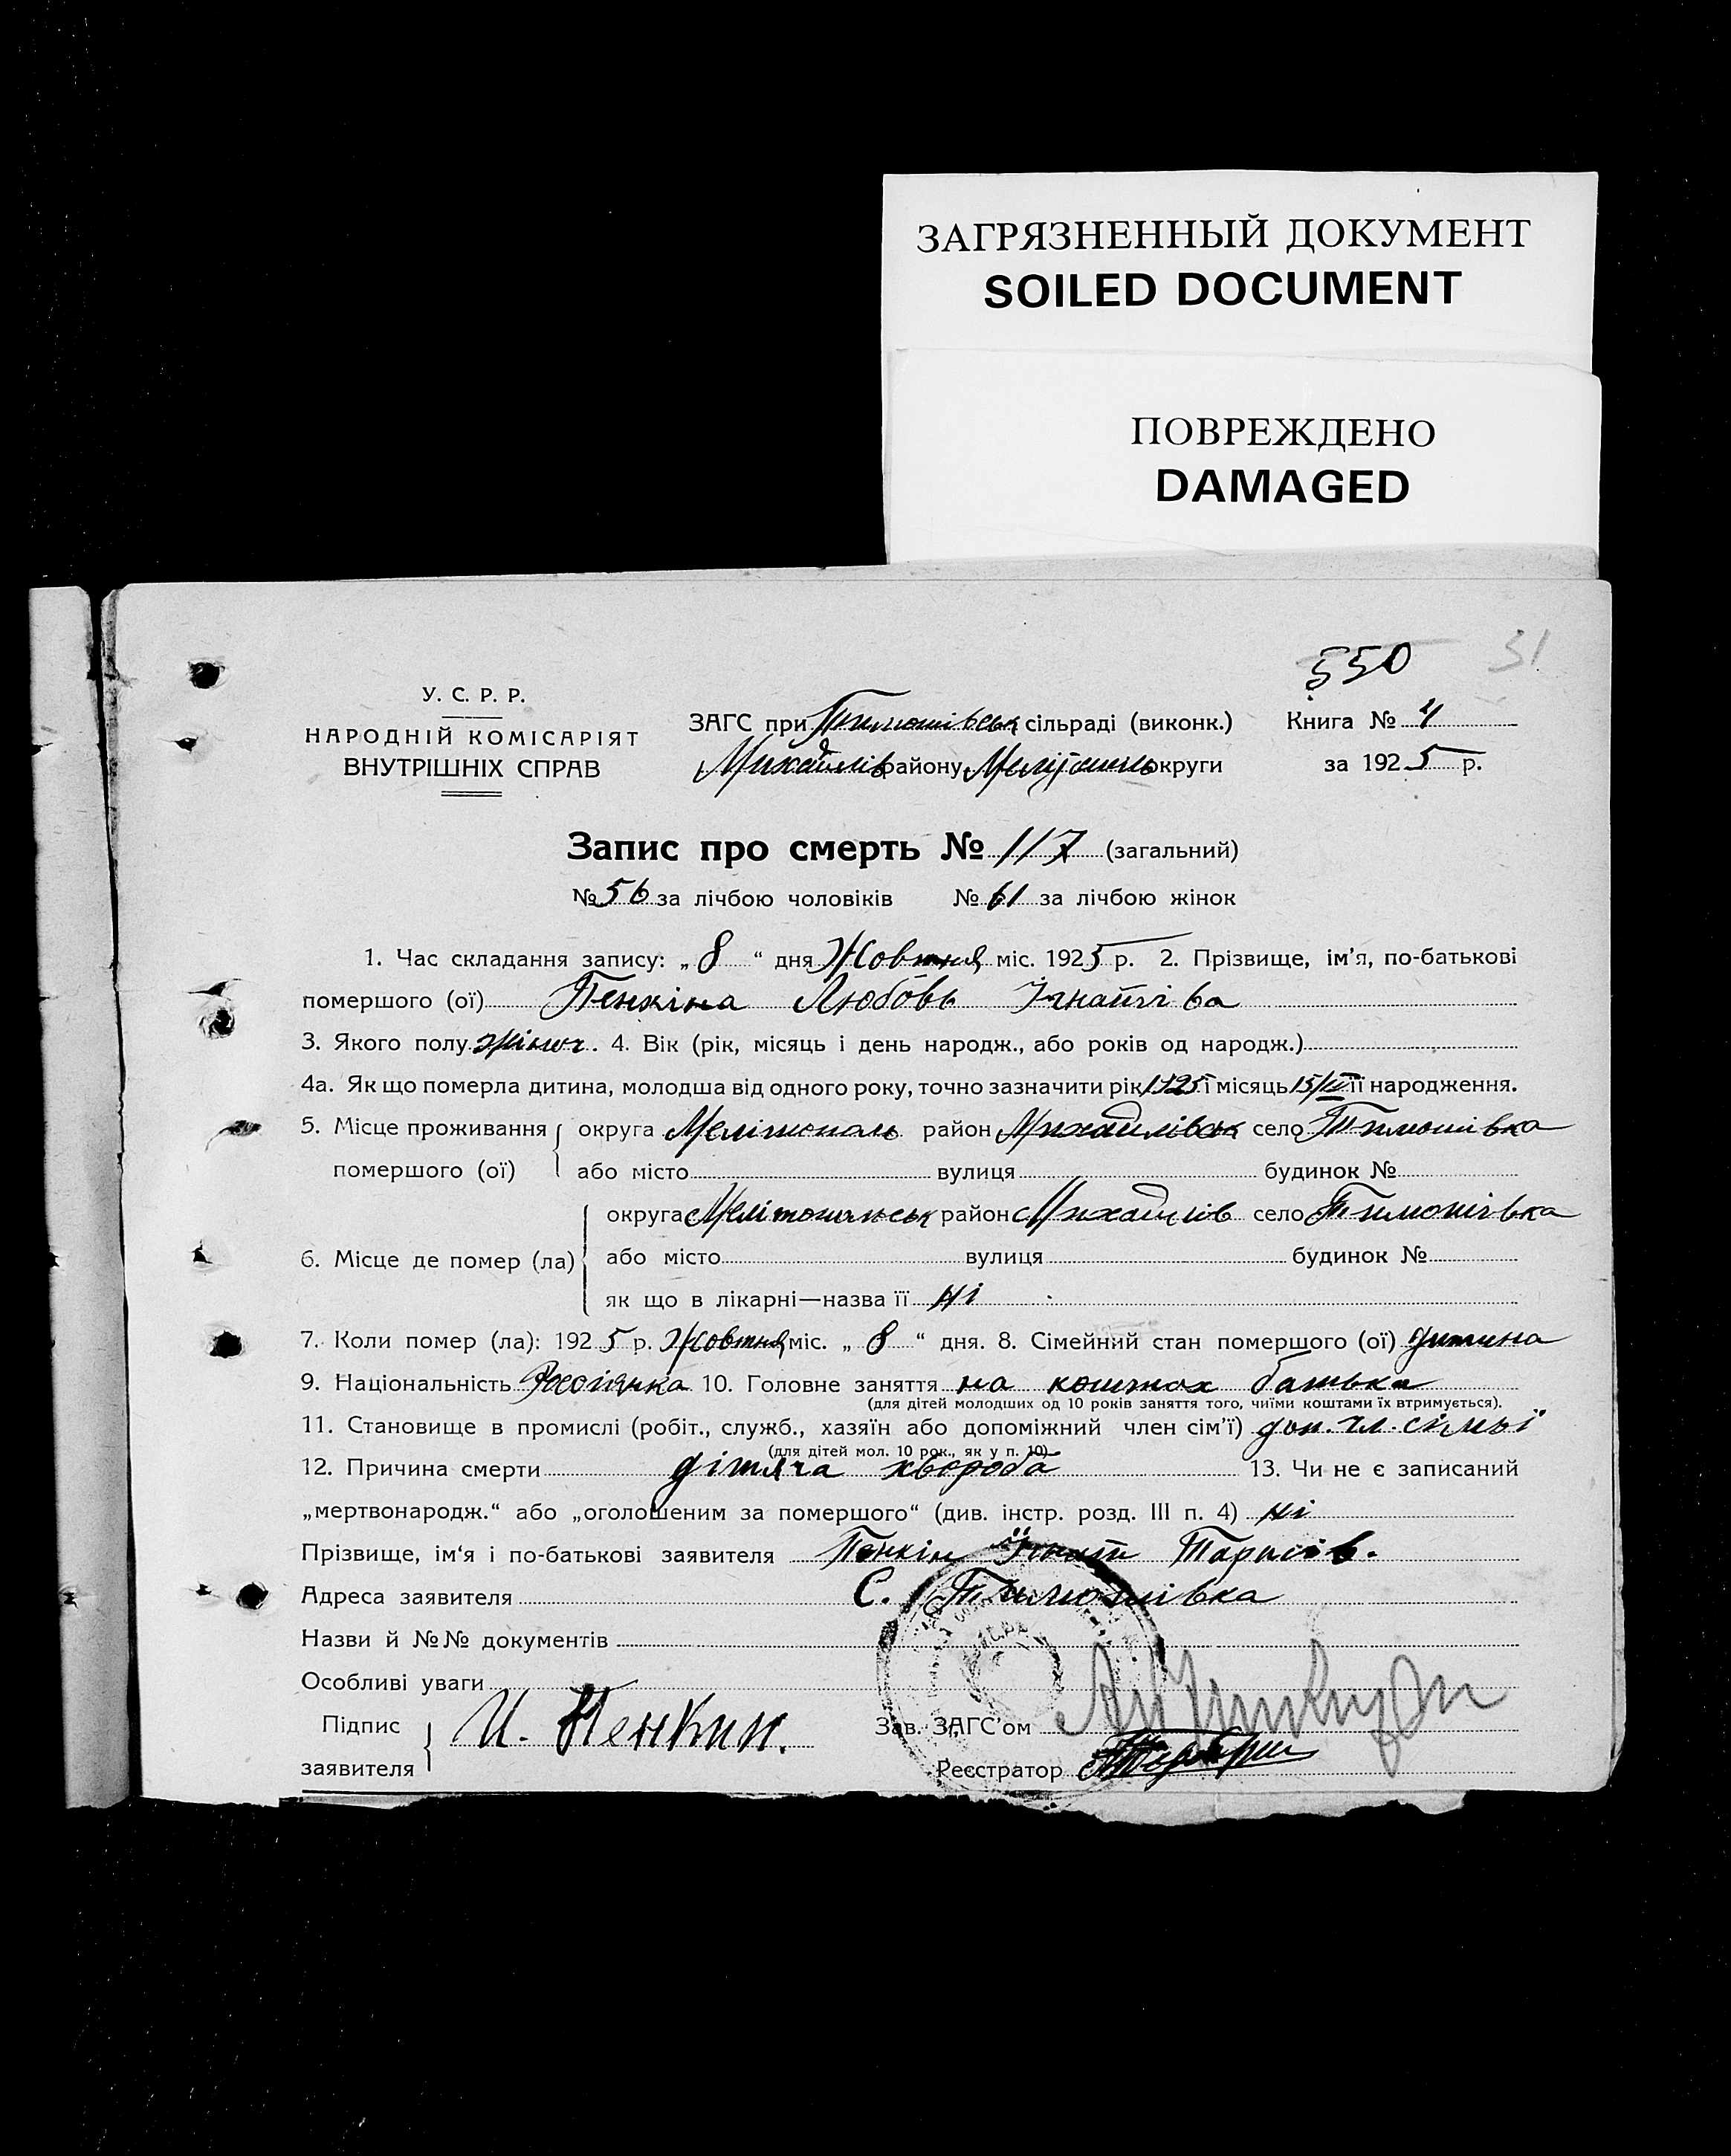 ЗАГРЯЗНЕННЫЙ ДОКУМЕНТ
SOILED DOCUMENT
ПОВРЕЖДЕНО
DAMAGED
550 31
У. С. Р. Р.
НАРОДНІЙ КОМІСАРІЯТ
ВНУТРІШНІХ СПРАВ
ЗАГС при Тимошівськ сільраді (виконк.)
Михайлів району Меліт округи
Книга № 4
за 1925 р.
Запис про смерть № 117 (загальний)
№ 56 за лічбою чоловіків № 61 за лічбою жінок
1. Час складання запису: „ 8 “ дня Жовтня міс. 1925 р. 2. Прізвище, ім’я, по-батькові
помершого (ої) Пенкіна Любовь Ігнатіва
3. Якого полу жіноч. 4. Вік (рік, місяць і день народж., або років од народж.)
4а. Як що померла дитина, молодша від одного року, точно зазначити рік 1925 і місяць 15/IV її народження.
5. Місце проживання помершого (ої) округа Мелітополь район Михайлівськ село Тимошівка
або місто вулиця будинок №
6. Місце де помер (ла) округа Мелітопільськ район Михайлів село Тимошівка
або місто вулиця будинок №
як що в лікарні—назва її ні
7. Коли помер (ла): 1925 р. Жовтня міс. „ 8 “ дня. 8. Сімейний стан помершого (ої) дитина
9. Національність Росіянка 10. Головне заняття на коштах батька
(для дітей молодших од 10 років заняття того, чиїми коштами їх втримується).
11. Становище в промислі (робіт., служб., хазяїн або допоміжний член сім’ї) доп. чл. сімьї
(для дітей мол. 10 рок., як у п. 10)
12. Причина смерти дітяча хвороба 13. Чи не є записаний
„мертвонародж.“ або „оголошеним за помершого“ (див. інстр. розд. III п. 4) ні
Прізвище, ім‘я і по-батькові заявителя Пенкін Ігнат Тарасів.
Адреса заявителя С. Тимошівка
Назви й №№ документів
Особливі уваги
Підпис заявителя И. Пенкин.
Зав. ЗАГС’ом
Реєстратор